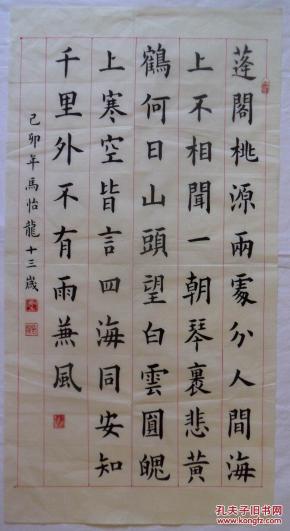 蓬閣桃源兩處分人間海
上不相聞一朝琴裏悲黃
鶴何日山頭望白雲圓魄
上寒空皆言四海同安知
千里外不有雨兼風
己卯年馬怡龍十三歲
孔夫子旧书网